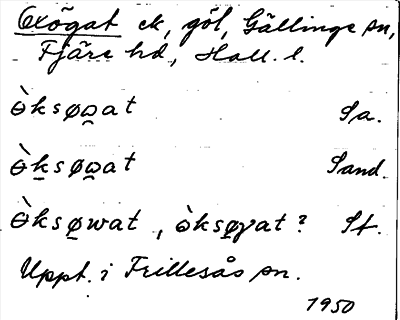 Oxögat ek, göl, Gällinge sn,
Fjäre hd, Hall. l.
ɵ̀ksøʍ̯at Sa.
ɵ̀ḵsøʍ̯at Sand.
ɵ̀ksø̱wat , ɵ̀ksø̱γat? St.
Uppt. i Frillesås sn.
1950